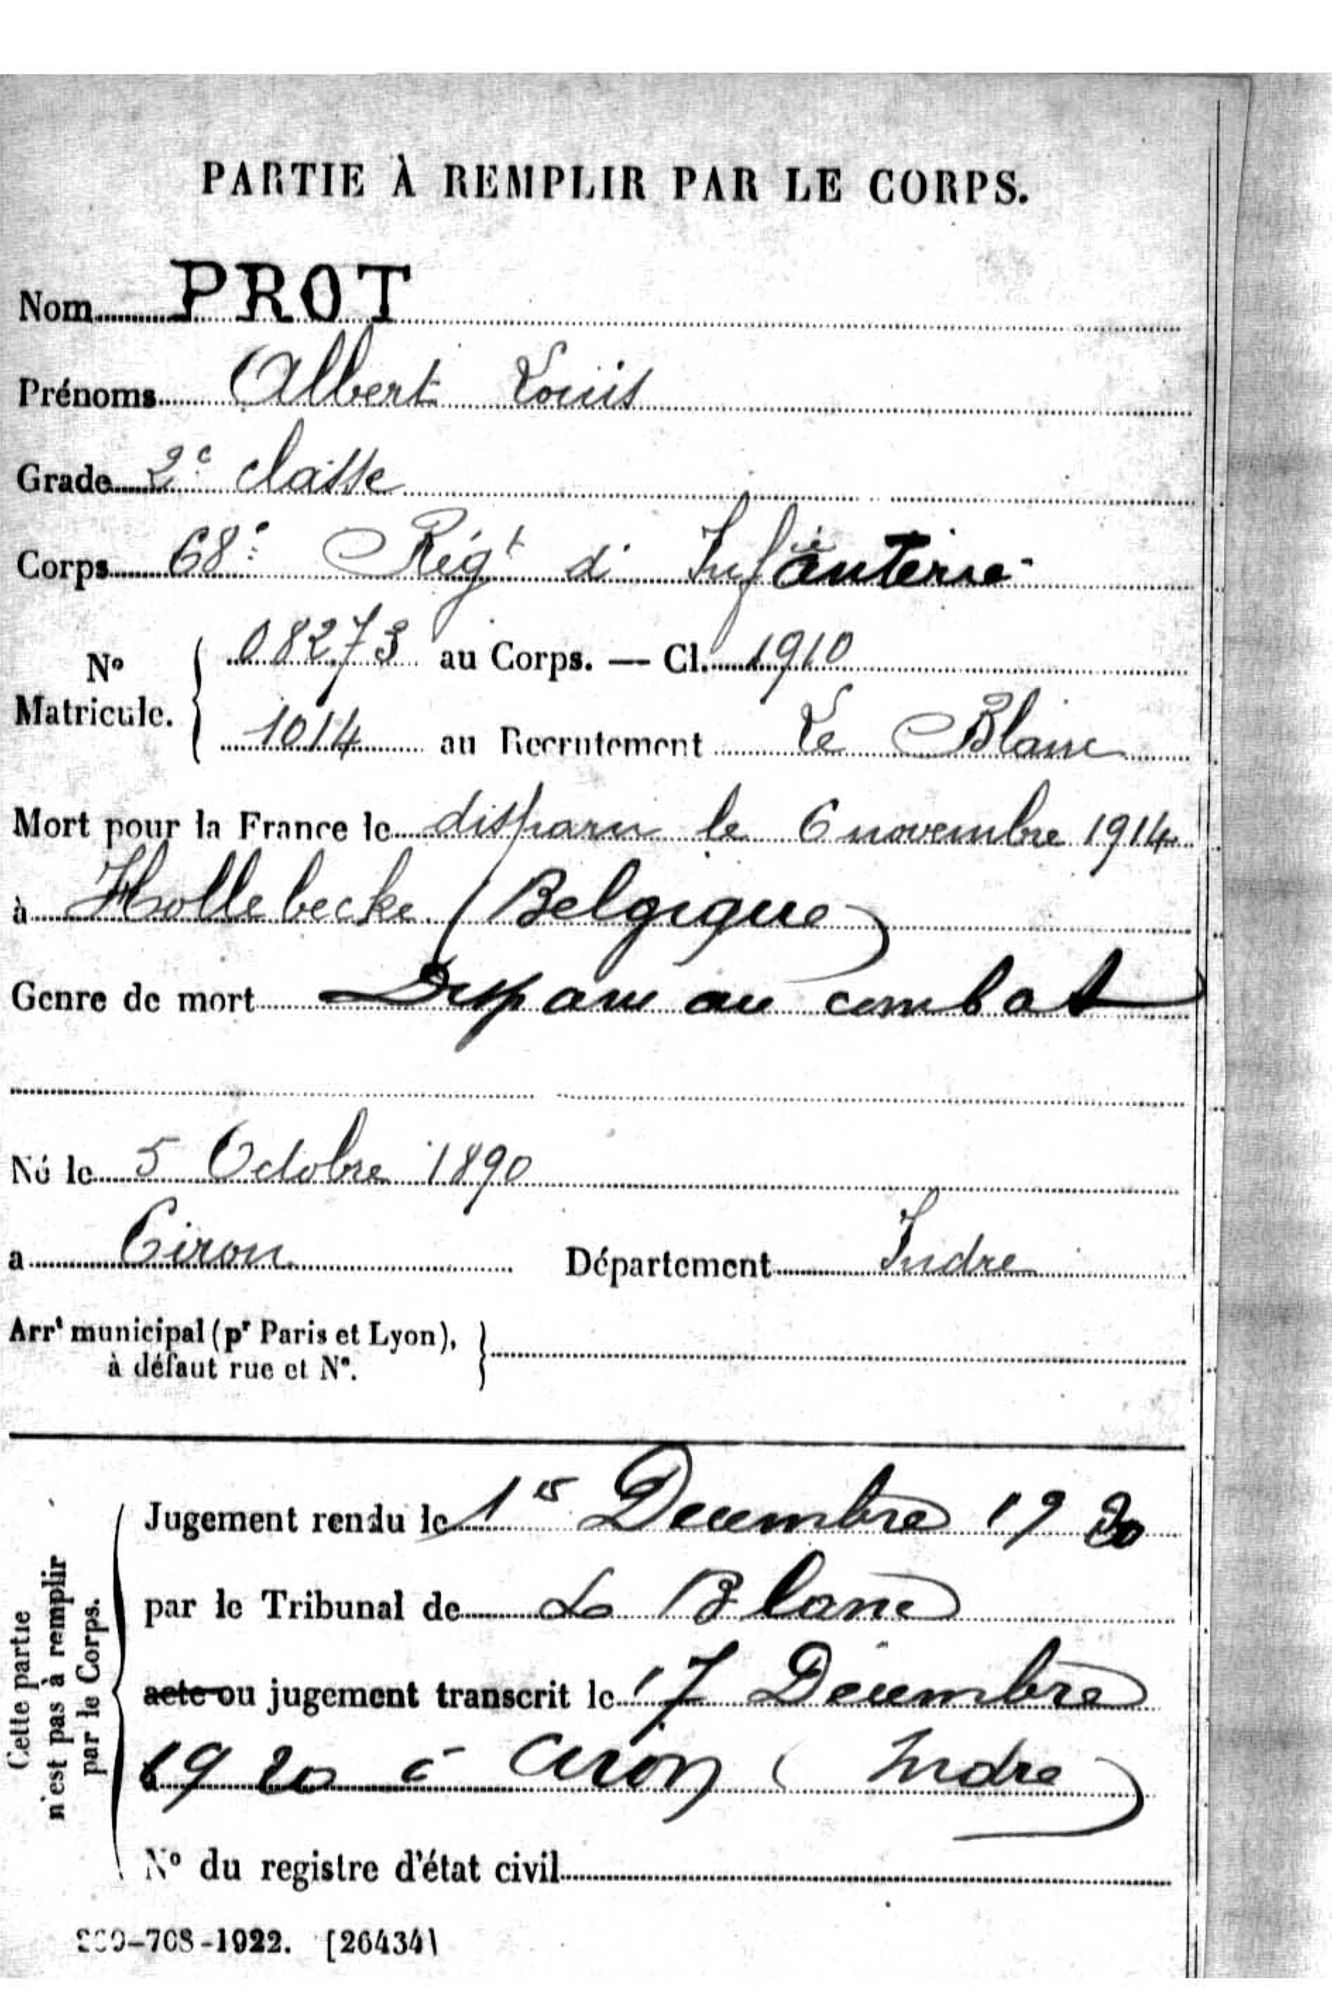 PARTIE À REMPLIR PAR LE CORPS.
Nom PROT
Prénoms Albert Louis
Grade 2e classe
Corps 68e Régt d'Infanterie
No Matricule. { 08273 au Corps. — Cl. 1910
1014 au Recrutement Le Blanc
Mort pour la France le disparu le 6 novembre 1914
à Hollebecke (Belgique)
Genre de mort Disparu au combat
Né le 5 Octobre 1890
a Ciron Département Indre
Arrt municipal (pr Paris et Lyon), }
à défaut rue et No.
Cette partie
n'est pas à remplir
par le Corps.
Jugement rendu le 1er Decembre 1920
par le Tribunal de Le Blanc
acte ou jugement transcrit le 17 Décembre
1920 à Ciron (Indre)
No du registre d'état civil
-708-1922. [26434]